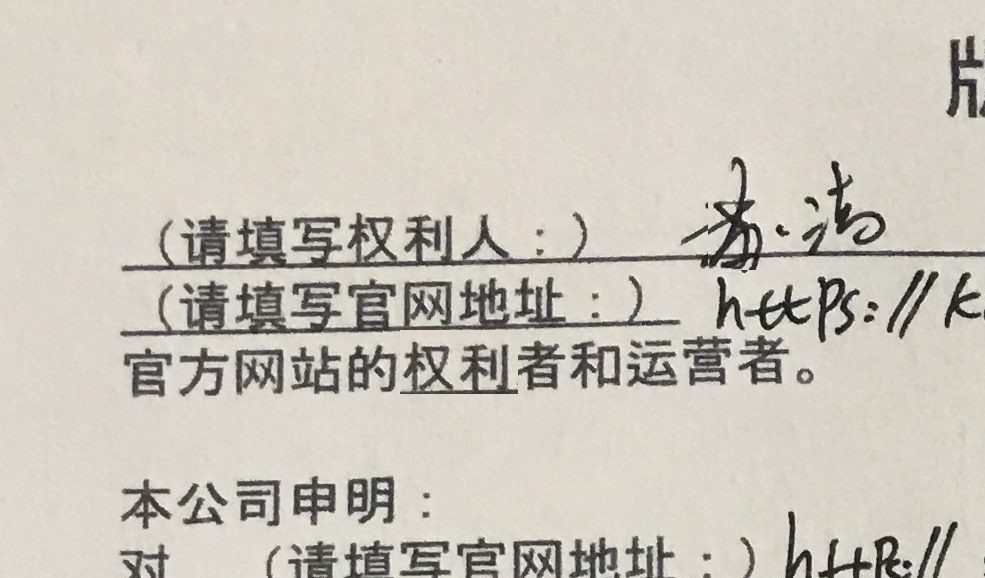 版
（请填写权利人：）
（请填写官网地址：） https://k
官方网站的权利者和运营者。
本公司申明：
对 （请填写官网地址：） https://